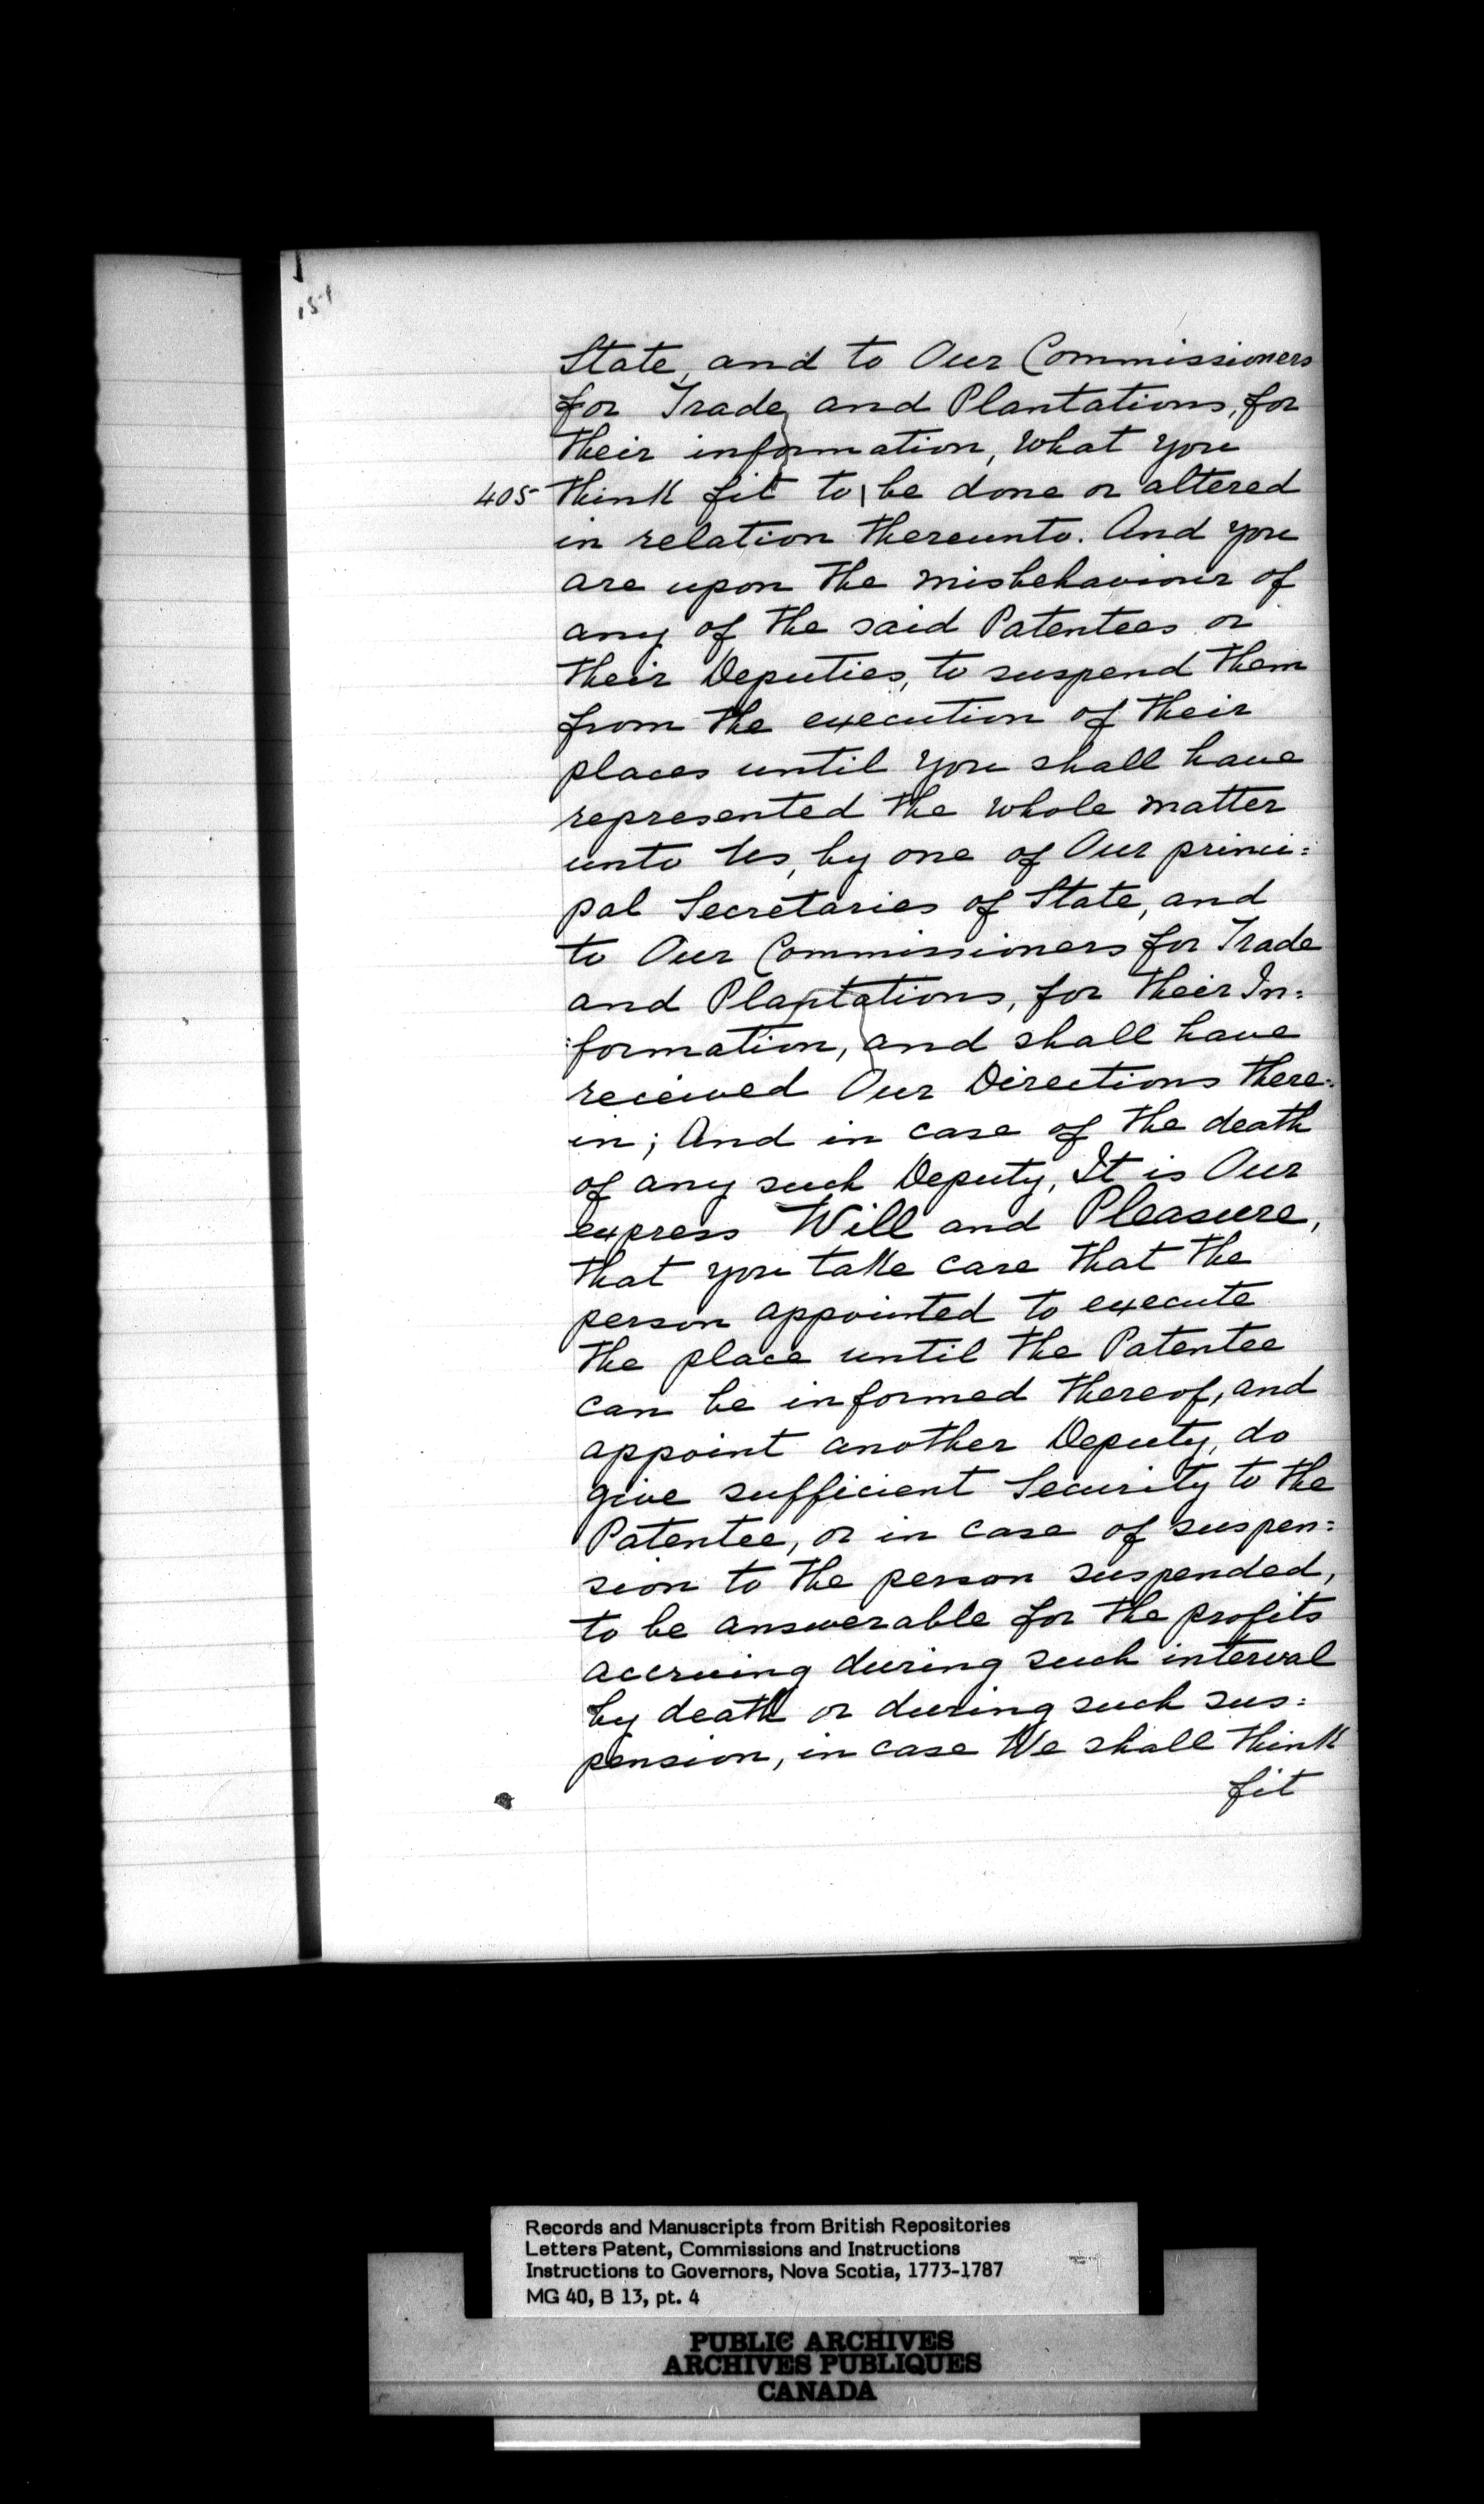 151
State, and to Our Commissioners
for Trade and Plantations, for
their information, what you
405 think fit to | be done or altered
in relation thereunto. And you
are upon the misbehaviour of
any of the said Patentees or
their Deputies, to suspend them
from the execution of their
places until you shall have
represented the whole matter
unto Us, by one of Our princi=
pal Secretaries of State, and
to Our Commissioners for Trade
and Plantations, for their In=
:formation, and shall have
received Our Directions there=
in; And in case of the death
of any such Deputy, It is Our
express Will and Pleasure,
that you take care that the
person appointed to execute
the place until the Patentee
can be informed thereof, and
appoint another Deputy, do
give sufficient Security to the
Patentee, or in case of suspen=
sion to the person suspended,
to be answerable for the profits
accruing during such interval
by death or during such sus=
pension, in case We shall think
fit
Records and Manuscripts from British Repositories
Letters Patent, Commissions and Instructions
Instructions to Governors, Nova Scotia, 1773-1787
MG 40, B 13, pt. 4
PUBLIC ARCHIVES
ARCHIVES PUBLIQUES
CANADA